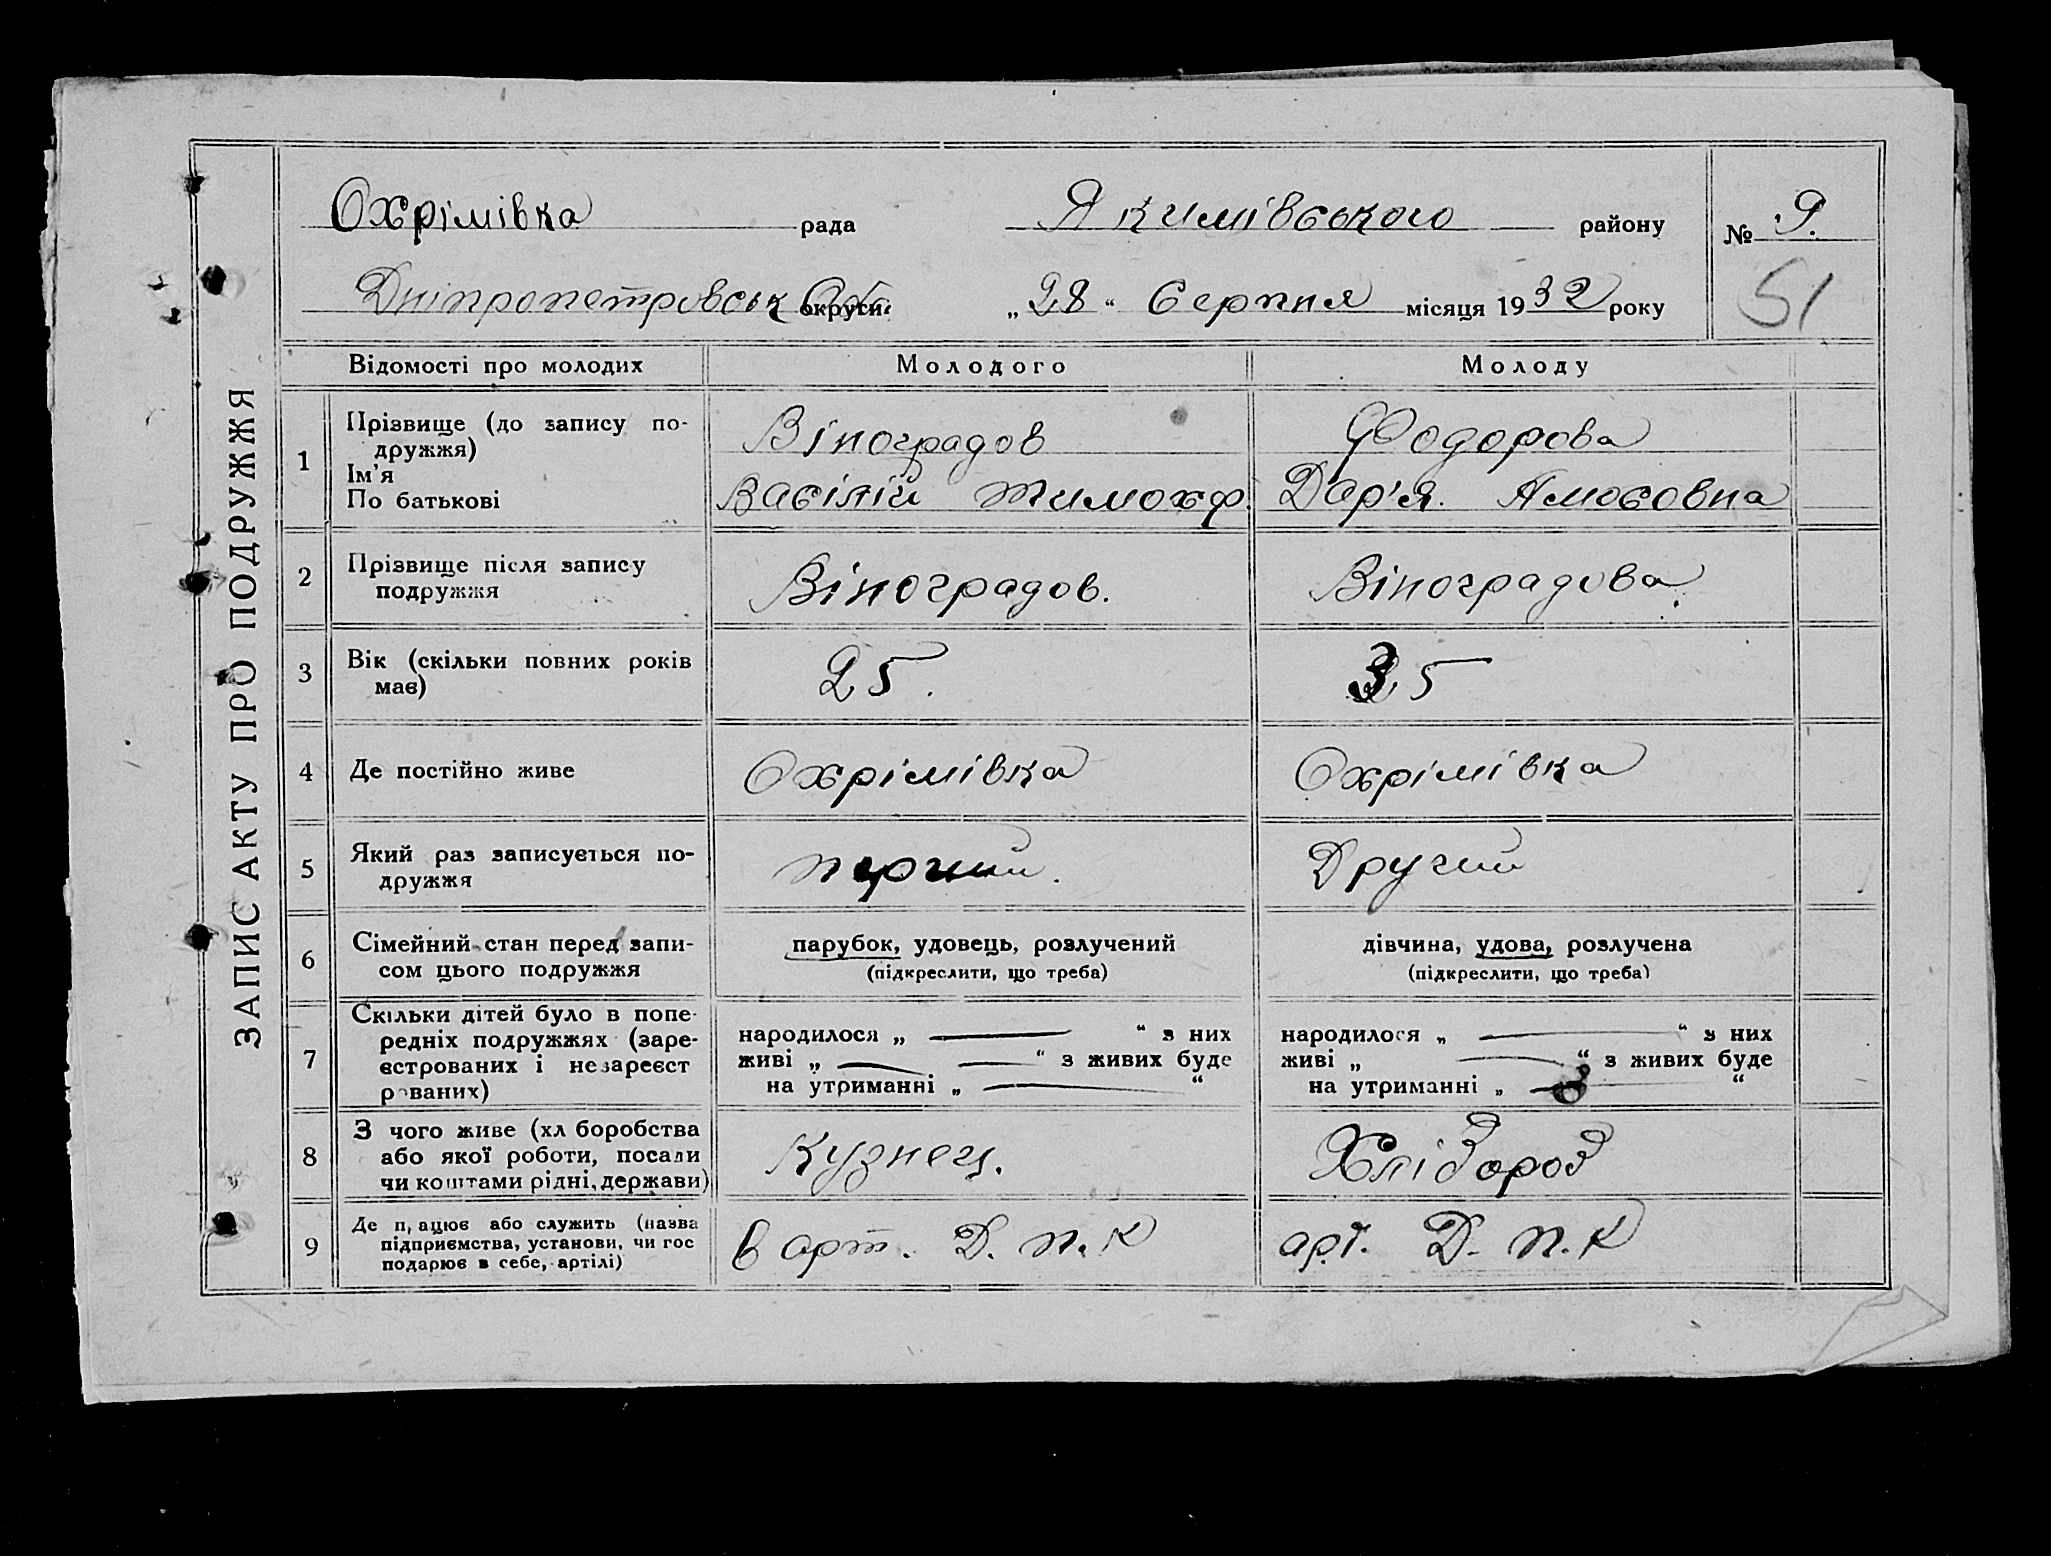 ЗАПИС АКТУ ПРО ПОДРУЖЖЯ
Охрімівка рада Якимівського району № 9.
Дніпропетровськ округи „28“ Серпня місяця 1932 року 51
Відомості про молодих Молодого Молоду
1 Прізвище (до запису по-
дружжя) Віноградов Фодорова
Ім'я
По батькові Васілій Тимохф. Дар'я. Амосовна
2 Прізвище після запису
подружжя Віноградов. Віноградова.
3 Вік (скільки повних років
має) 25. 35
4 Де постійно живе Охрімівка Охрімівка
5 Який раз записується по-
дружжя перчий. Другий
6 Сімейний стан перед запи-
сом цього подружжя
парубок, удовець, розлучений дівчина, удова, розлучена
(підкреслити, що треба) (підкреслити, що треба)
7 Скільки дітей було в попе-
редніх подружжях (заре-
єстрованих і незареєст
рованих)
народилося „ — “ з них народилося „ — “ з них
живі „ — “ з живих буде живі „ — “ з живих буде
на утриманні „ — “ на утриманні „ — “
8 З чого живе (хл боробства
або якої роботи, посади
чи коштами рідні, держави) Кузнец. Хлібороб
9 Де п, ацює або служить (назва
підприємства, установи, чи гос
подарює в себе, артілі) в арт. Д. п. к арт. Д. п. к